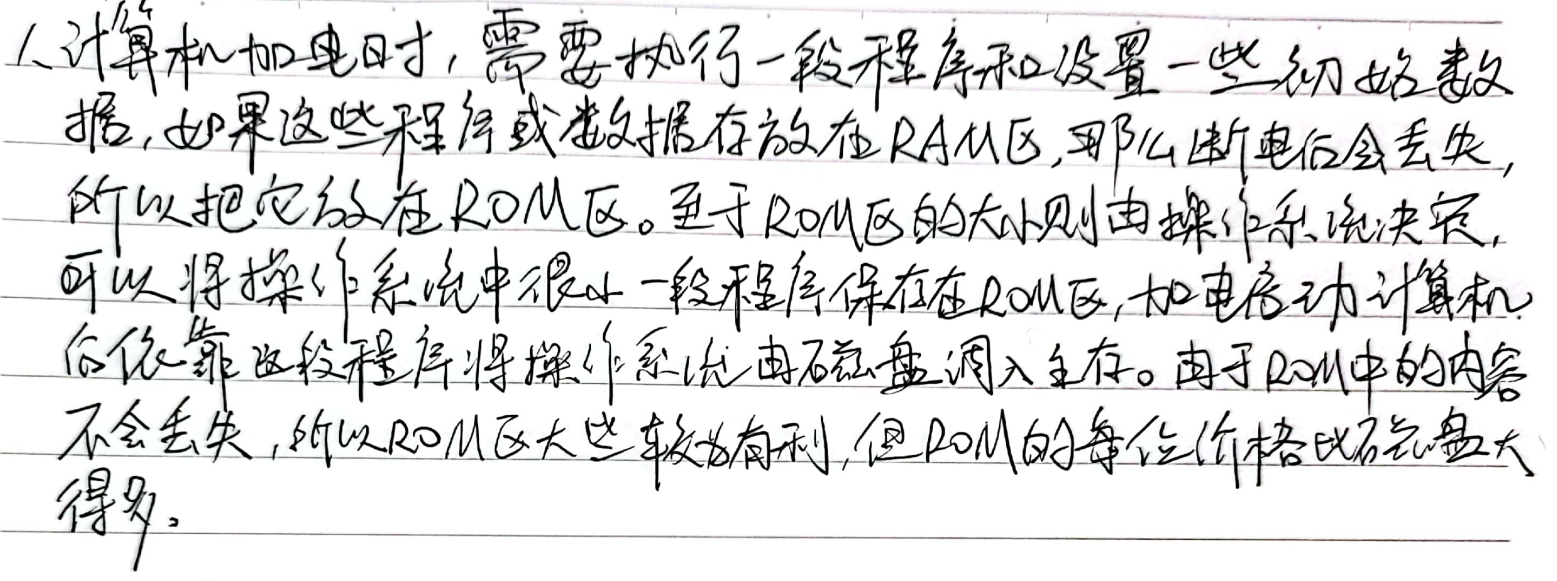 1、计算机加电时,需要执行一段程序和设置一些初始数
据,如果这些程序或数据存放在RAM区,那么断电后会丢失,
所以把它放在ROM区。至于ROM区的大小则由操作系统决定,
可以将操作系统中很小一段程序保存在ROM区,加电启动计算机
后依靠这段程序将操作系统由磁盘调入主存。由于ROM中的内容
不会丢失,所以ROM区大些较为有利,但ROM的每位价格比磁盘大
得多。